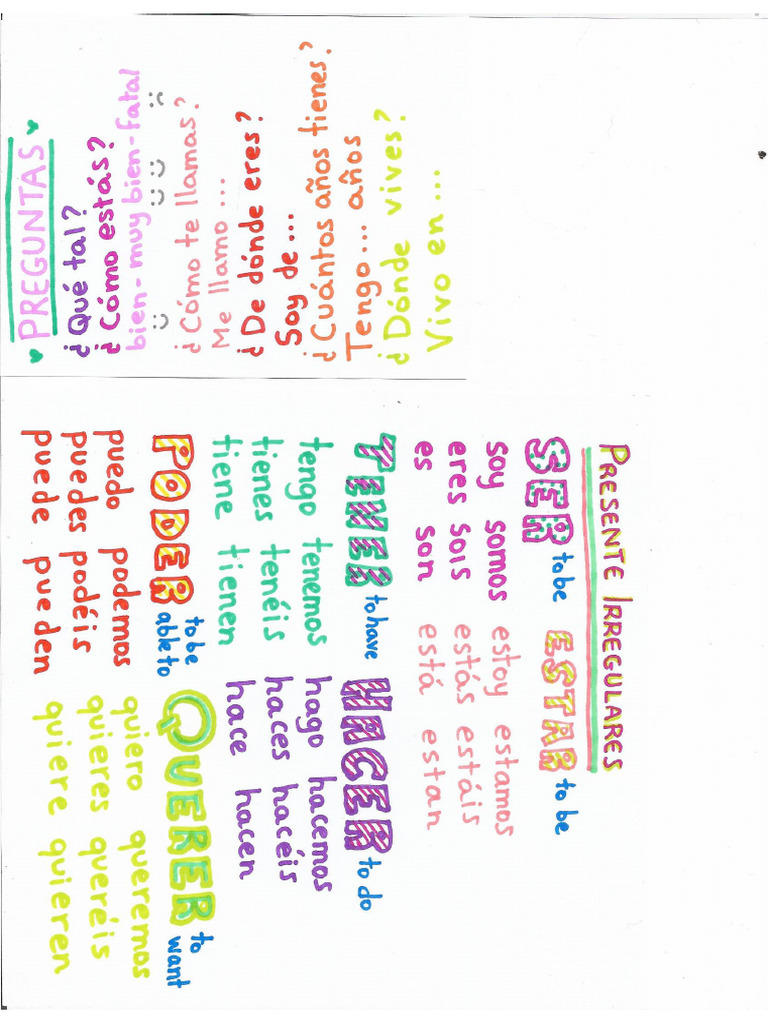 PREGUNTAS
¿Qué tal?
¿Cómo estás?
bien - muy bien - fatal
¿Cómo te llamas?
Me llamo ...
¿De dónde eres?
Soy de ...
¿Cuántos años tienes?
Tengo ... años
¿Dónde vives?
Vivo en ...
PRESENTE IRREGULARES
SER to be
soy somos
eres sois
es son
ESTAR to be
estoy estamos
estás estáis
está estan
TENER to have
tengo tenemos
tienes tenéis
tiene tienen
HACER to do
hago hacemos
haces hacéis
hace hacen
PODER to be
able to
puedo podemos
puedes podéis
puede pueden
QUERER to
want
quiero queremos
quieres queréis
quiere quieren